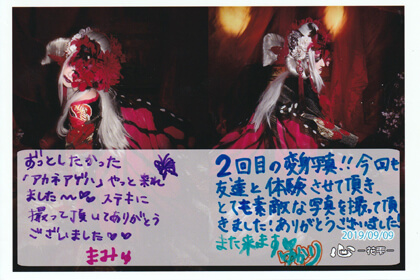 ずっとしたかった
「アカネアゲハ」やっと来れ
ました〜♡♡ ステキに
撮って頂いてありがとう
ございました♡♡
まみ
2回目の変身写真!!今回も
友達と体験させて頂き、
とても素敵な写真を撮って頂
きました!ありがとうございました
2019/09/09
また来ます♡
心 -花雫-